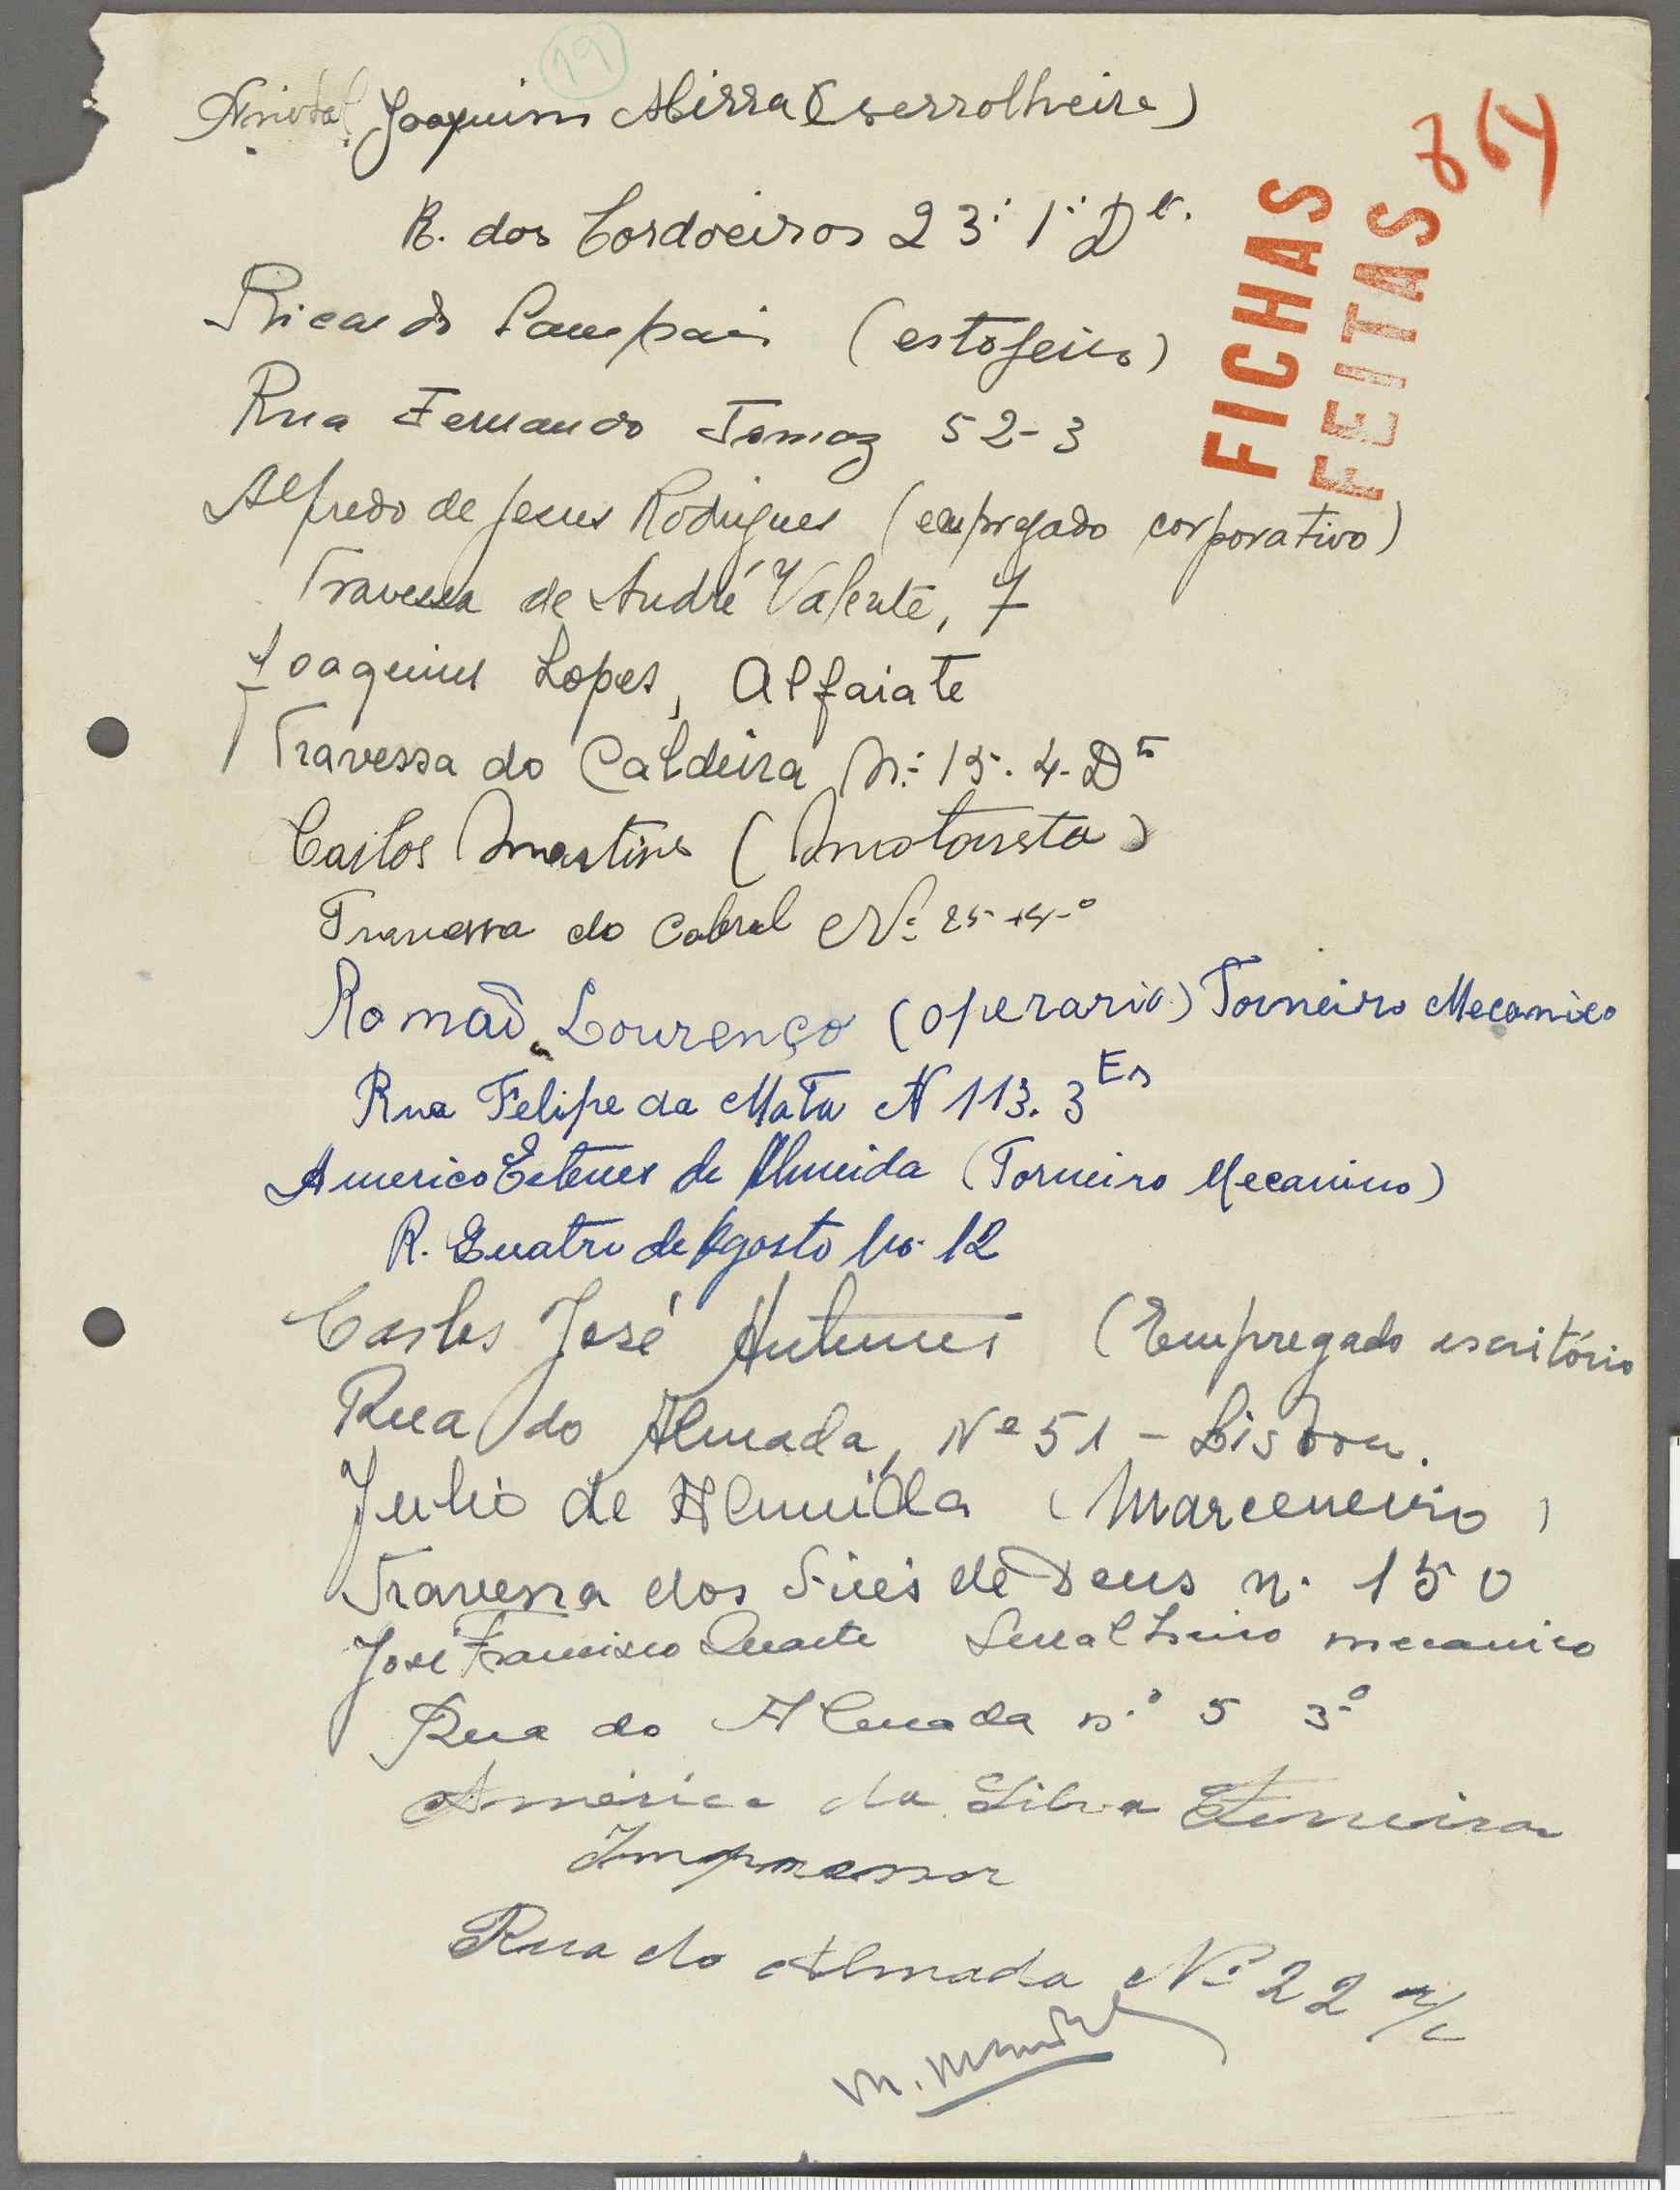 19
Joaquim Mirra (serrolheiro)
764
FICHAS
FEITAS
R. dos Cordoeiros 23: 1º Dt.
Ricardo Sampaio (estofeiro)
Rua Fernando Tomaz 52-3
Alfredo de Jesus Rodrigues (empregado corporativo)
Travessa de André Valente, 7
Joaquim Lopes, Alfaiate
Travessa do Caldeira Nº 15. 4. Dto
Carlos Martins (Motorista)
Travessa do Cabral Nº 25-4-º
Romão Lourenço (operario) Torneiro Mecanico
Rua Felipe da Mata N 113. 3 Es
Americo Esteves de Almeida (Torneiro Mecanico)
R. Quatro de Agosto No. 12
Carlos José Antunes (Empregado escritório
Rua do Almada, Nº 51 - Lisboa.
Julio de Almeida (Marceneiro)
Travessa dos Fieis de Deus n. 150
José Francisco Duarte Serralheiro mecanico
Rua do Almada n.º 5 3.º
Américo da Silva Ferreira
Impressor
Rua do Almada Nº 22 r/c